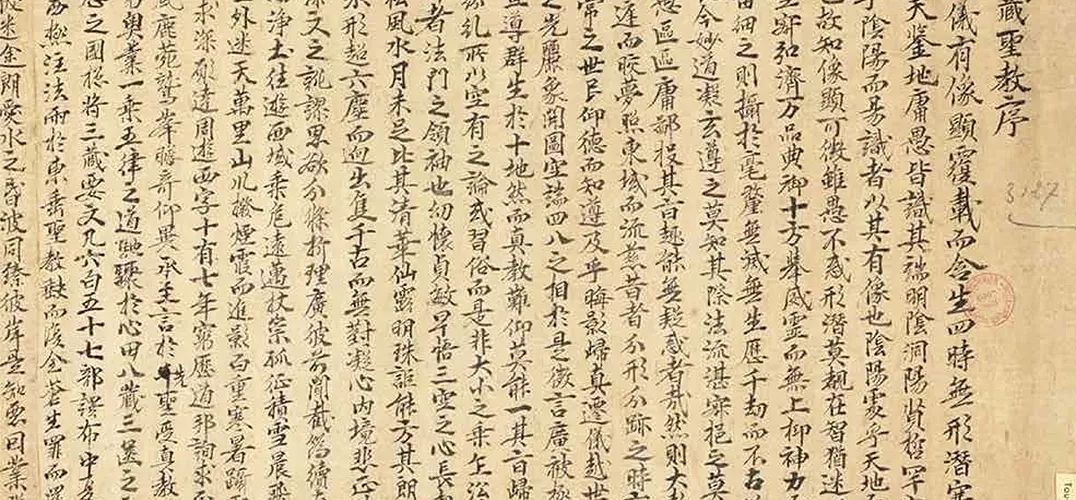 藏聖教序
儀有像顯覆載而含生四時無形潛寒
天鑒地庸愚皆識其端明陰洞陽賢哲罕
乎陰陽而易識者以其有像也陰陽處乎天地
也故知像顯可徵雖愚不惑形潛莫覩在智猶迷
空寂弘濟万品典御十方舉威靈而無上抑神力
宙細之則攝於毫釐無滅無生歷千劫而不古
今妙道凝玄遵之莫知其際法流湛寂挹之莫
愚區區庸鄙投其旨趣能無疑惑者哉然則大
庭而皎夢照東域而流慈昔者分形分跡之時
常之世民仰德而知遵及乎晦影歸真遷儀越世
之光麗象開圖空端四八之相於是微言廣被
導群生於十地然而真教難仰莫能一其旨歸
紛糺所以空有之論或習俗而是非大小之乘乍沿
者法門之領袖也幼懷貞敏早悟三空之心長
松風水月未足比其清華仙露明珠詎能方其朗
形超六塵而迥出隻千古而無對凝心內境悲正
深文之訛謬思欲分條析理廣彼前聞截偽續
淨土往遊西域乘危遠邁杖策孤征積雪晨飛
外迷天萬里山川撥煙霞而進影百重寒暑躡
求深願達周遊西宇十有七年窮歷道邦詢求
鹿菀鷲峯瞻奇仰異承至言於先聖受真教
奧業一乘五律之道馳驟於心田八藏三篋之
之國揔將三藏要文凡六百五十七部譯布中
極注法雨於東垂聖教缺而復全蒼生罪而還
迷途朗愛水之昏波同臻彼岸是知惡因業
3127